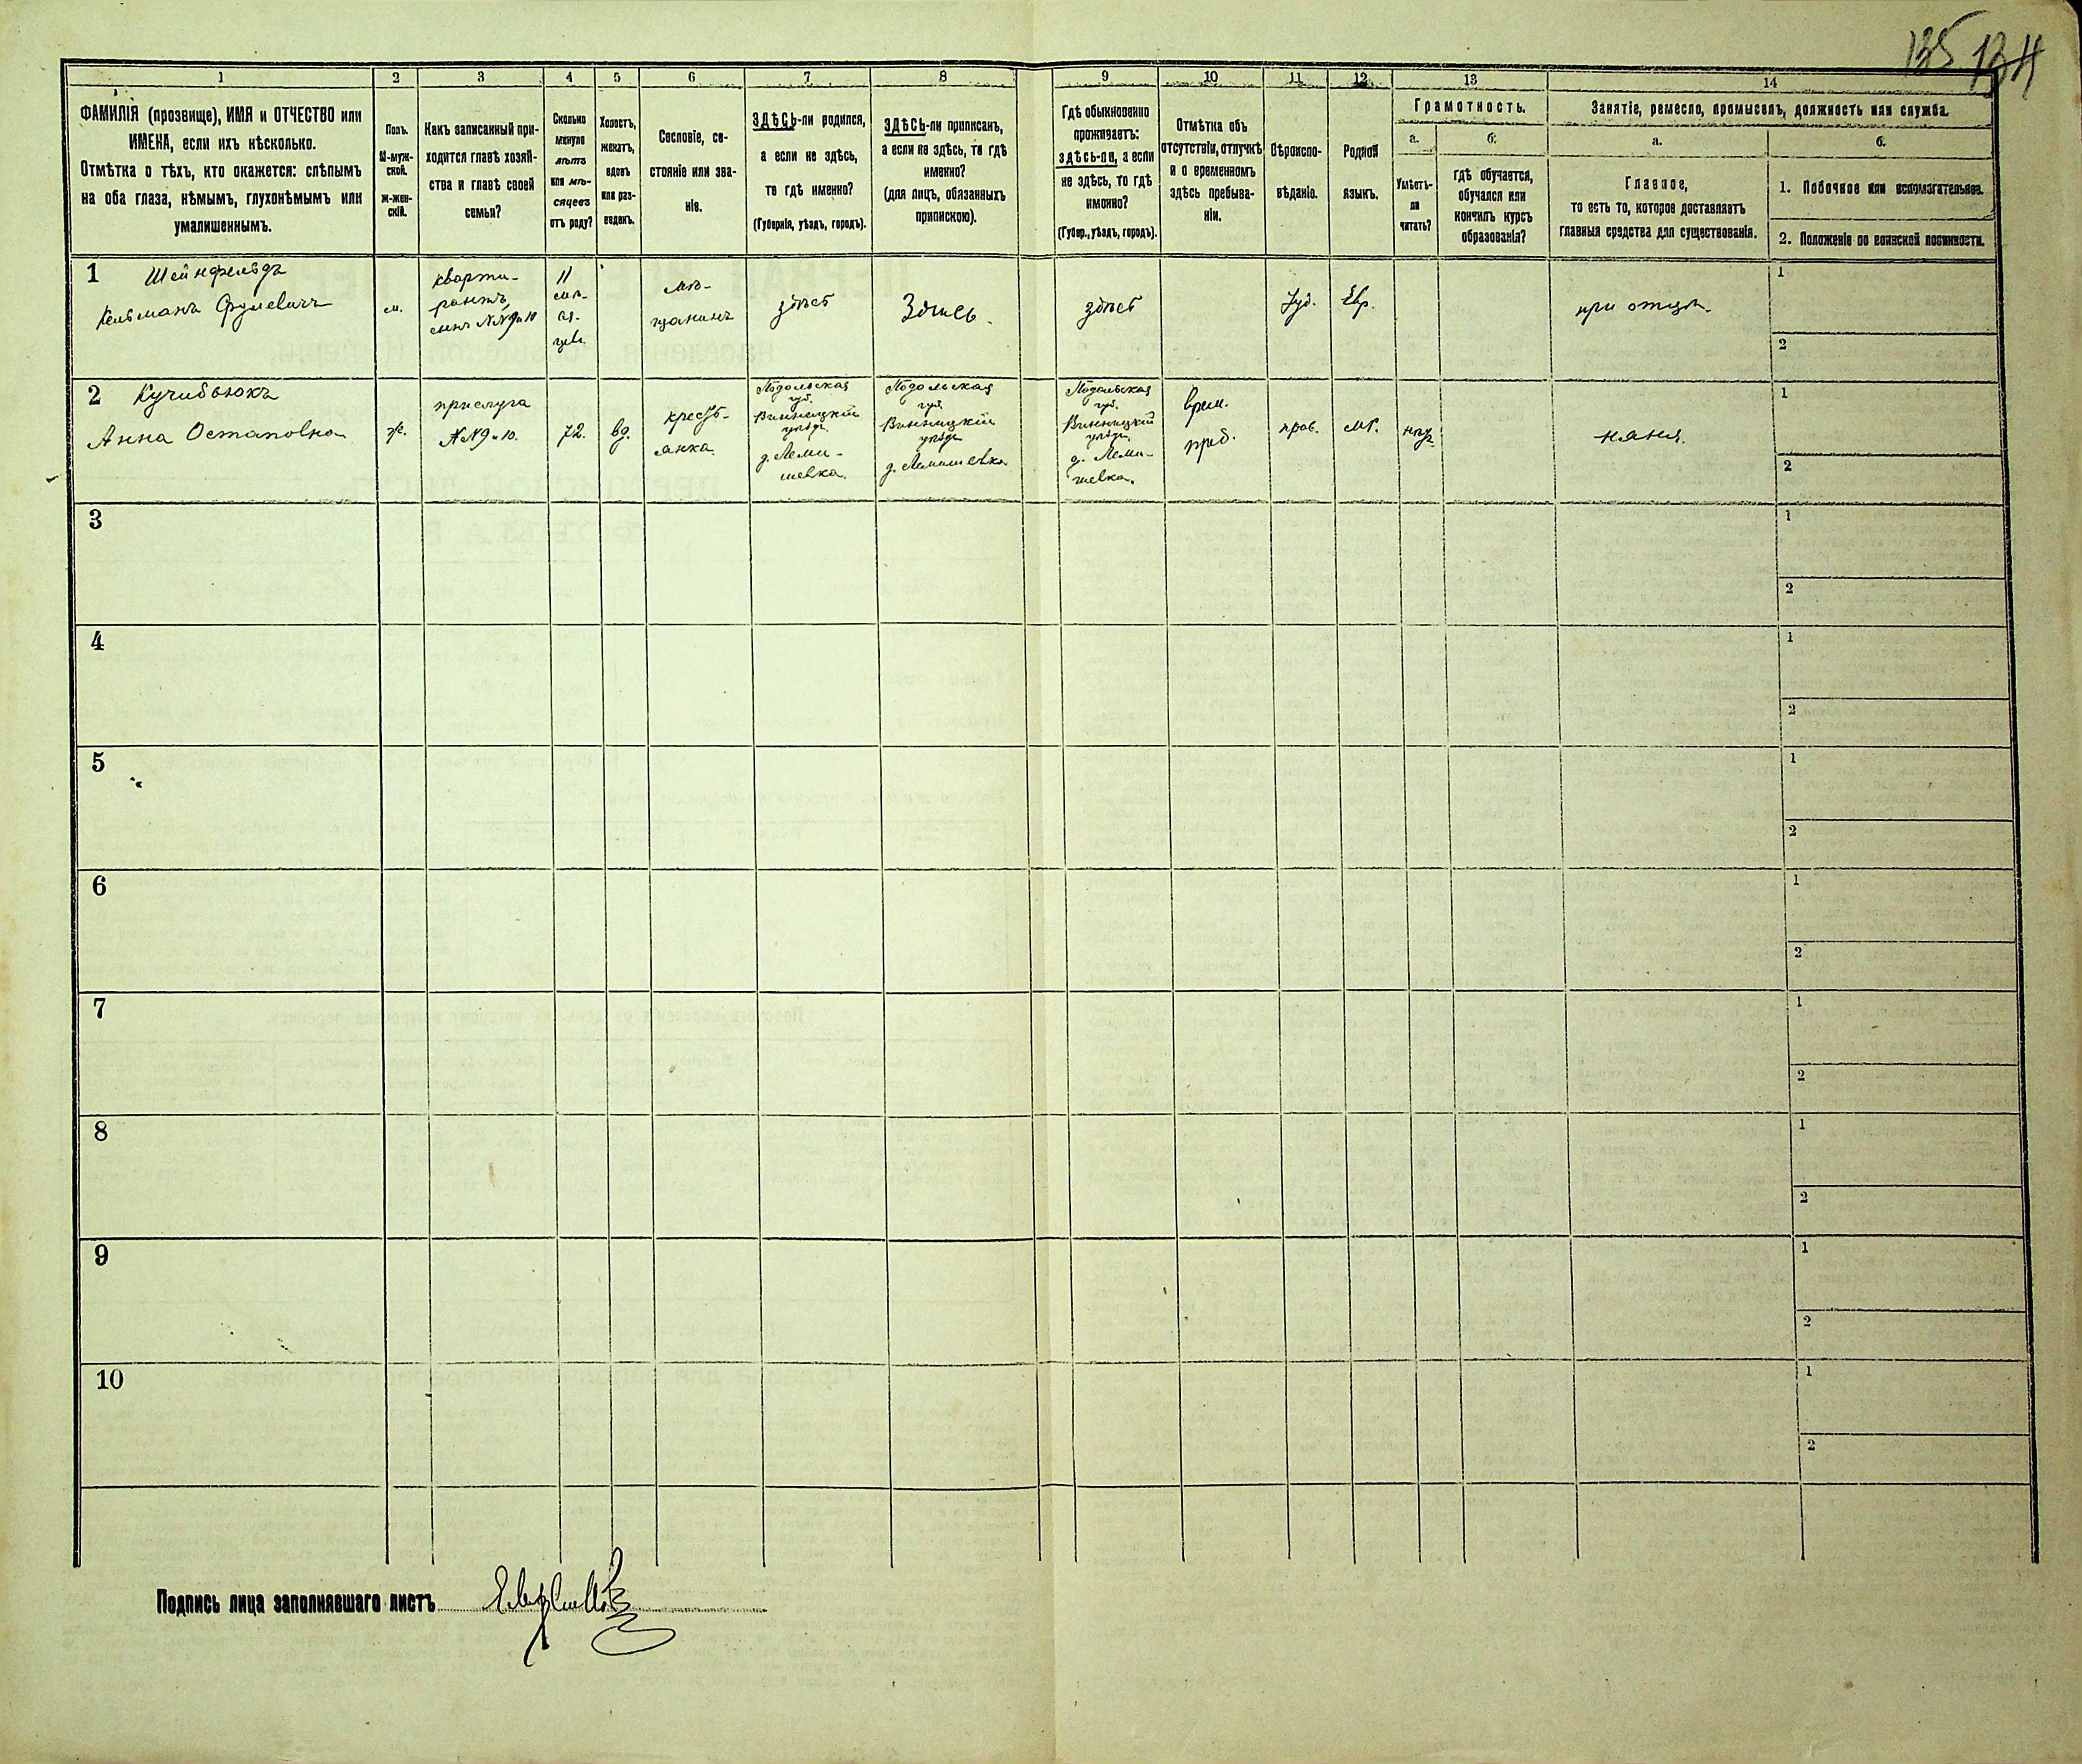 135 134
1 2 3 4 5 6 7 8 9 10 11 12 13 14
ФАМИЛІЯ (прозвище), ИМЯ и ОТЧЕСТВО или
ИМЕНА, если ихъ нѣсколько.
Отмѣтка о тѣхъ, кто окажется: слѣпымъ
на оба глаза, нѣмымъ, глухонѣмымъ или
умалишеннымъ.
Полъ.
М-муж-
ской.
Ж-жен-
скій.
Какъ записанный при-
ходится главѣ хозяй-
ства и главѣ своей
семьи?
Сколько
минуло
лѣтъ
или мѣ-
сяцевъ
отъ роду?
Холостъ,
женатъ,
вдовъ
или раз-
веденъ.
Сословіе, со-
стояніе или зва-
ніе.
ЗДѢСЬ-ли родился,
а если не здѣсь,
то гдѣ именно?
(Губернія, уѣздъ, городъ).
ЗДѢСЬ-ли приписанъ,
а если не здѣсь, то гдѣ
именно?
(для лицъ, обязанныхъ
припискою).
Гдѣ обыкновенно
проживаетъ:
здѣсь-ли, а если
не здѣсь, то гдѣ
именно?
(Губер., уѣздъ, городъ).
Отмѣтка объ
отсутствіи, отлучкѣ
и о временномъ
здѣсь пребыва-
ніи.
Вѣроиспо-
вѣданіе.
Родной
языкъ.
Грамотность.
а.
Умѣетъ-
ли
читать?
б.
гдѣ обучается,
обучался или
кончилъ курсъ
образованія?
Занятіе, ремесло, промыселъ, должность или служба.
а.
Главное,
то есть то, которое доставляетъ
главныя средства для существованія.
б.
1. Побочное или вспомогательное.
2. Положеніе по воинской повинности.
1 Шейнфельдъ
м.
кварти-
рантъ
сынъ №№ 9 и 10
11
мѣ-
ся-
цев.
мѣ-
щанинъ
здѣсь
Здѣсь.
здѣсь
Іуд.
Евр.
при отцѣ.
1
2
2 Кучибьюкъ
Анна Остаповна
ж.
прислуга
№№ 9 и 10.
72.
вд.
кресть-
янка.
Подольская
губ.
Винницкій
уѣздъ
д. Леми-
шевка.
Подольская
губ.
Винницкій
уѣздъ
д. Лемишевка
Подольская
губ.
Винницкій
уѣздъ
д. Леми-
шевка.
врем.
преб.
прав.
мр.
няня.
1
2
3
1
2
4
1
2
5
1
2
6
1
2
7
1
2
8
1
2
9
1
2
10
1
2
Подпись лица заполнявшаго листъ